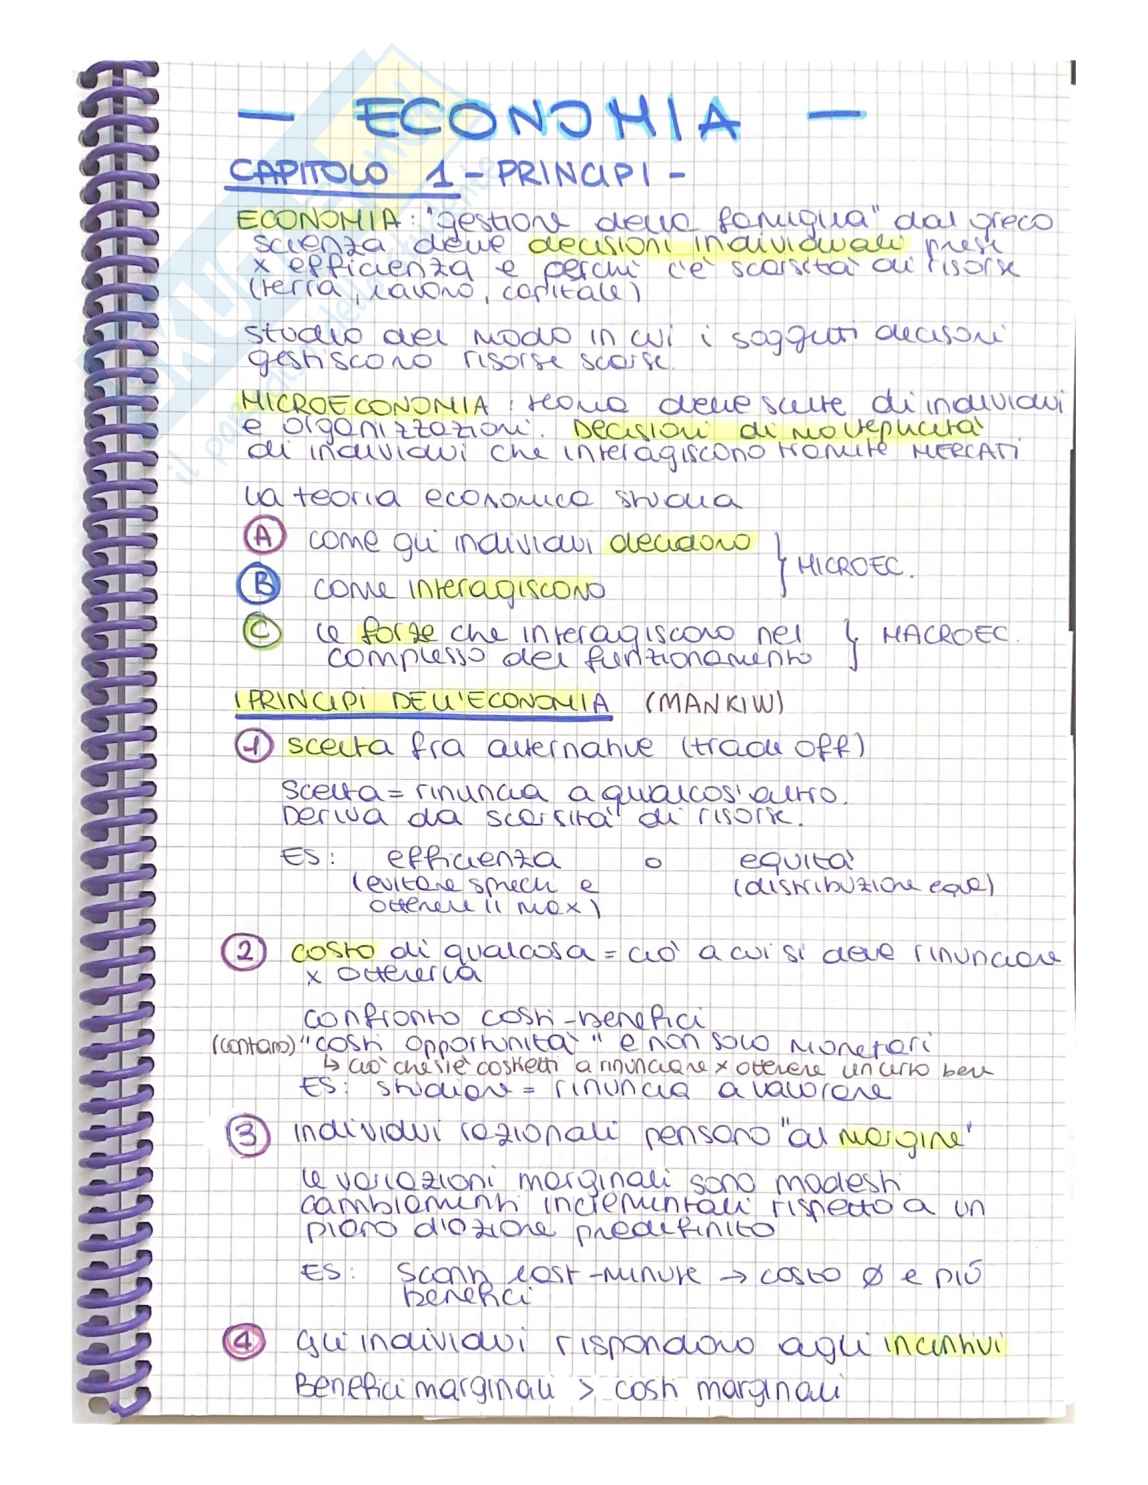 — ECONOMIA —
CAPITOLO 1 - PRINCIPI -
ECONOMIA: "gestione della famiglia" dal greco
scienza delle decisioni individuali prese
x efficienza e perché c'è scarsità di risorse
(terra, lavoro, capitale)
studio del modo in cui i soggetti decisori
gestiscono risorse scarse.
MICROECONOMIA: teoria delle scelte di individui
e organizzazioni. Decisioni di molteplicità
di individui che interagiscono tramite MERCATI
La teoria economica studia
A come gli individui decidono
B come interagiscono
} MICROEC.
C le forze che interagiscono nel
complesso del funzionamento
} MACROEC.
I PRINCIPI DELL'ECONOMIA (MANKIW)
1 scelta fra alternative (trade off)
Scelta = rinuncia a qualcos'altro.
Deriva da scarsità di risorse.
ES: efficienza o equità
(evitare sprechi e (distribuzione equa)
ottenere il max)
2 costo di qualcosa = ciò a cui si deve rinunciare
x ottenerla
confronto costi-benefici
(contano) "costi opportunità" e non solo monetari
↳ ciò che si è costretti a rinunciare x ottenere un altro bene
ES: studiare = rinuncia a lavorare
3 individui razionali pensano "al margine"
le variazioni marginali sono modesti
cambiamenti incrementali rispetto a un
piano d'azione predefinito
ES: sconti last-minute → costo Ø e più
benefici
4 gli individui rispondono agli incentivi
Benefici marginali > costi marginali